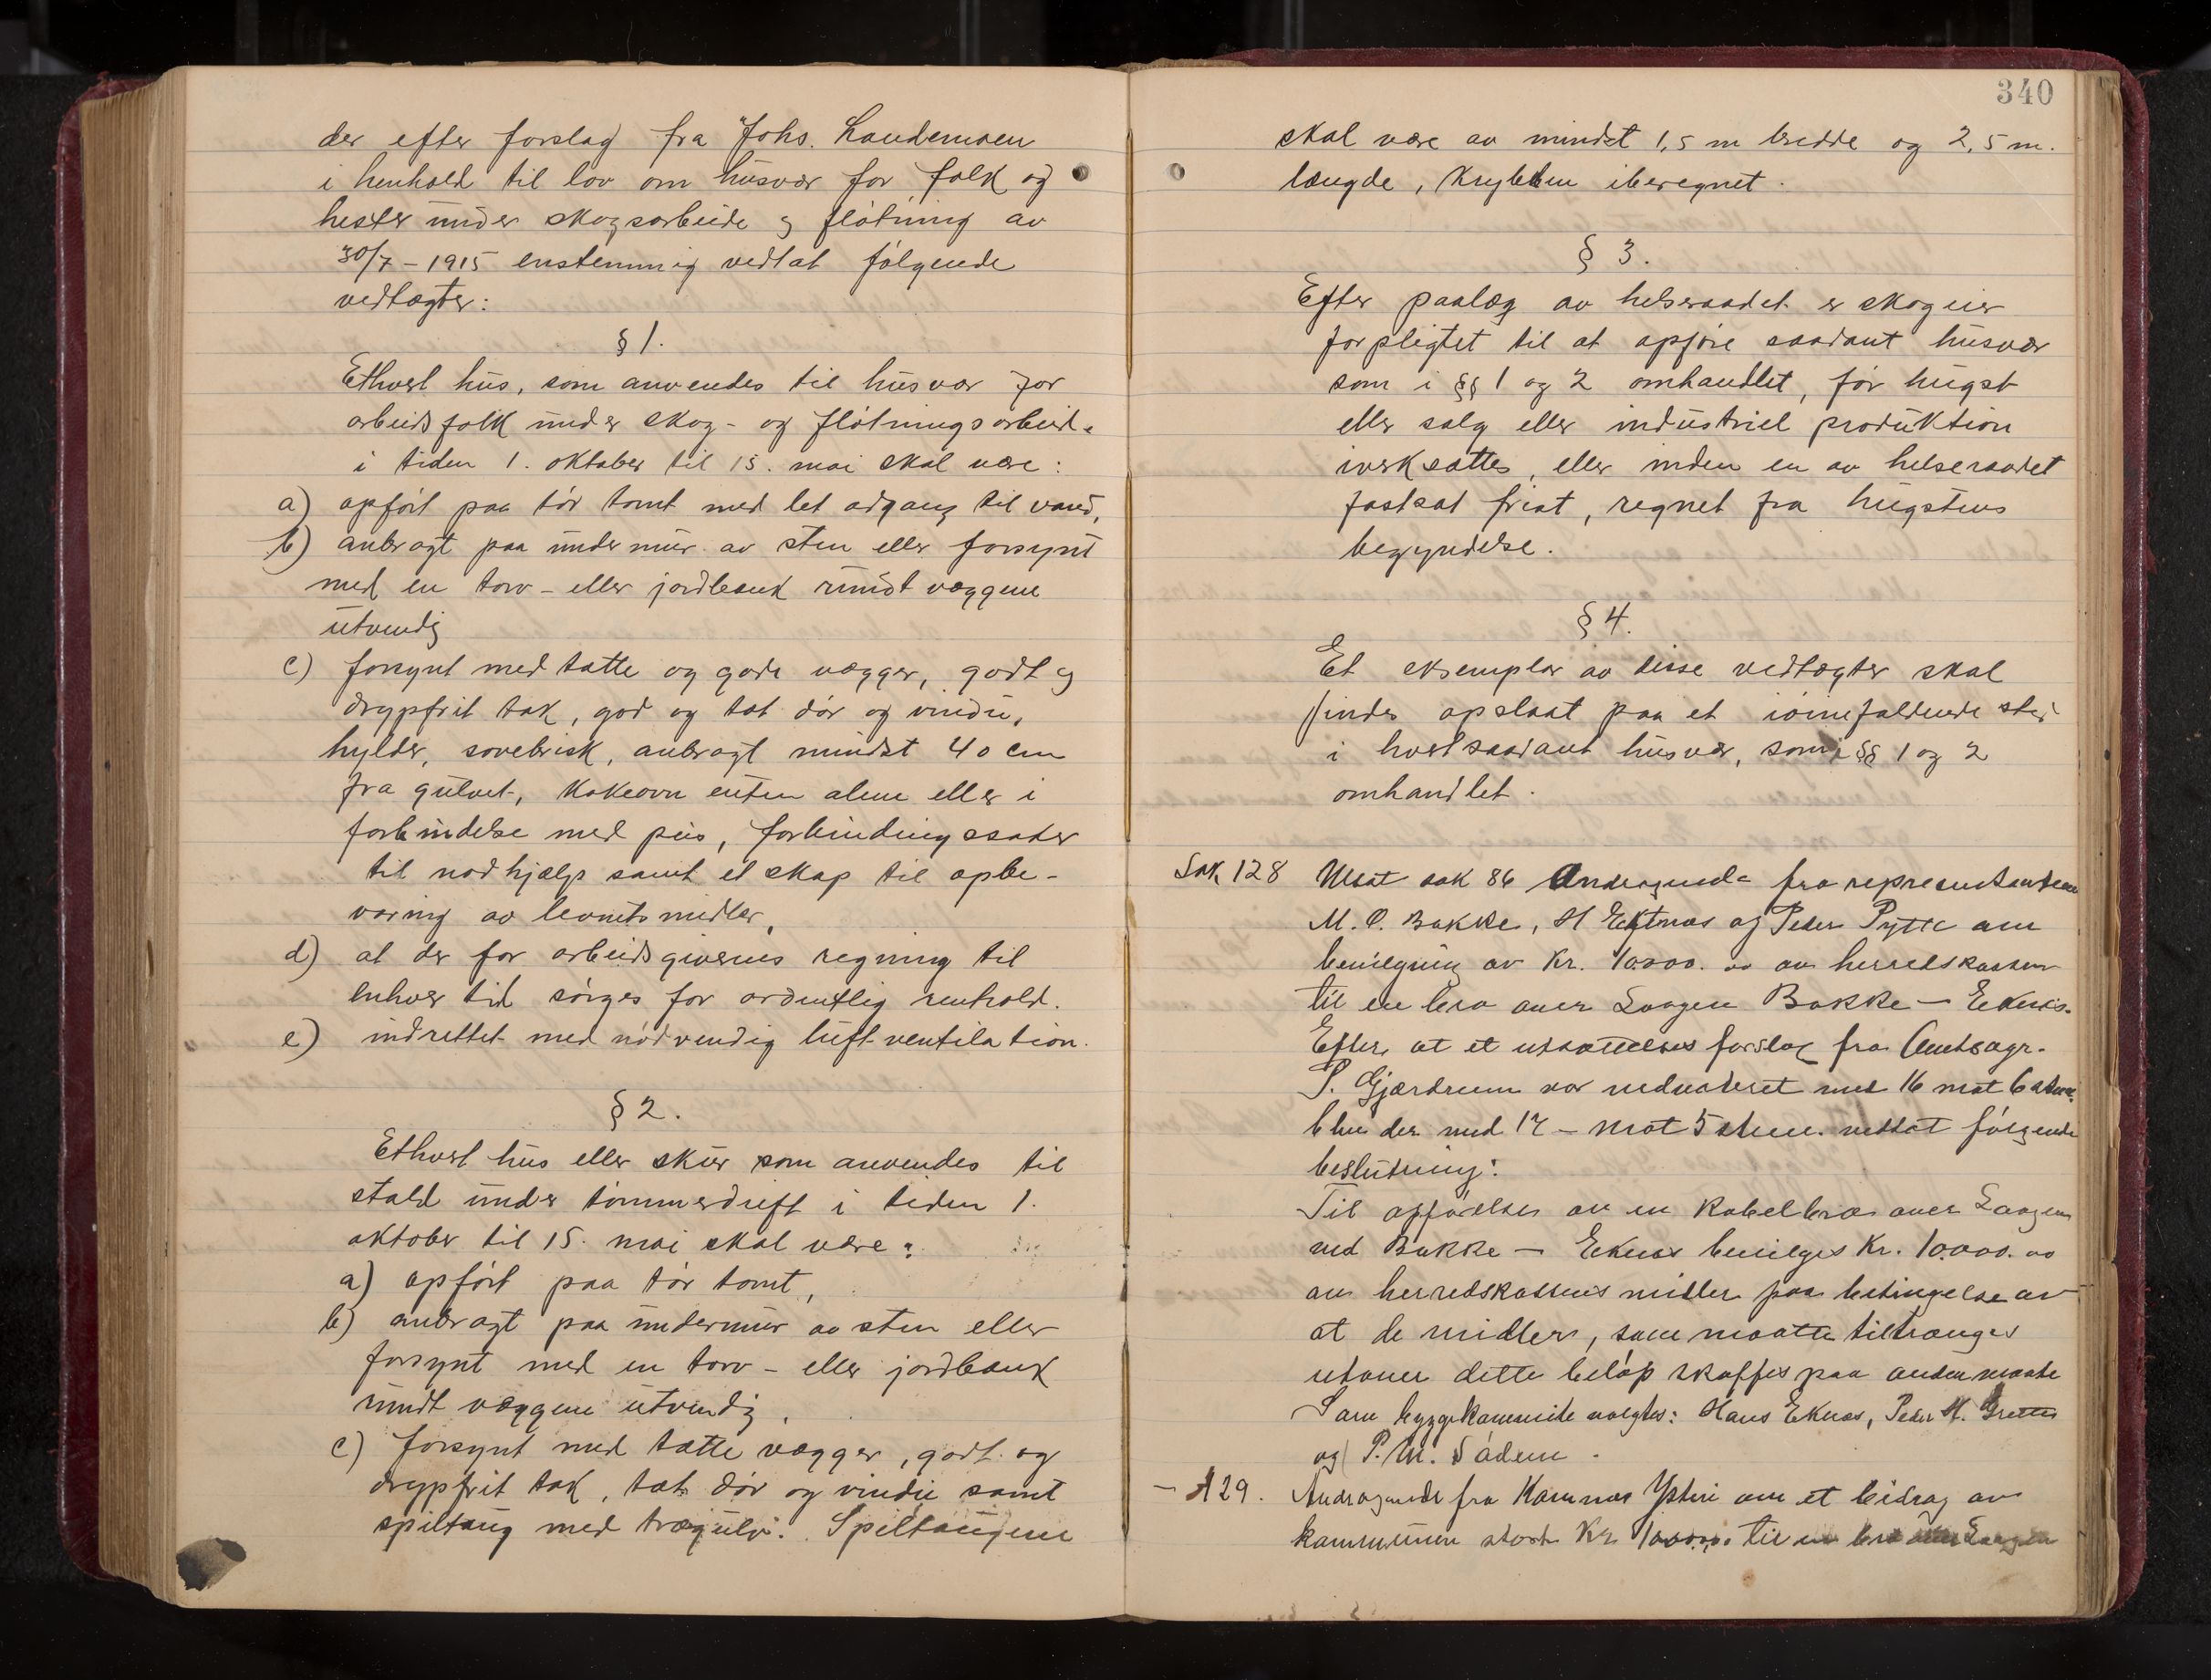 der efter forslag fra Johs. Landemoen
i henhold til lov om husvær for folk og
hester under skogsarbeide og fløtning av
30/7 - 1915 enstemmig vedtat følgende
vedtægter:
§ 1.
Ethvert hus, som anvendes til husvær for
arbeidsfolk under skog- og fløtningsarbeide
i tiden 1. oktober til 15. mai skal være:
a) opført paa tør tomt med let adgang til vand,
b) anbragt paa undermur av sten eller forsynt
med en torv- eller jordbenk rundt væggene
utvendig
c) forsynt med tætte og gode vægger, godt og
drypfrit tak, god og tæt dør og vindu,
hylder, sovebrisk, anbragt mindst 40 cm
fra gulvet, kokeovn enten alene eller i
forbindelse med peis, forbindingssaker
til nødhjælp samt et skap til opbe-
varing av levnetsmidler,
d) at der for arbeidsgiverens regning til
enhver tid sørges for ordentlig renhold.
e) indrettet med nødvendig luftventilation.
§ 2.
Ethvert hus eller skur som anvendes til
stald under tømmerdrift i tiden 1.
oktober til 15. mai skal være:
a) opført paa tør tomt,
b) anbragt paa undermur av sten eller
forsynt med en torv- eller jordbenk
rundt væggene utvendig,
c) forsynt med tætte vægger, godt og
drypfrit tak, tæt dør og vindu samt
spiltaug med trægulv. Spiltaugene
340
skal være av mindst 1,5 m bredde og 2,5 m.
længde, krybben iberegnet.
§ 3.
Efter paalæg av helseraadet er skogeier
forpligtet til at opføre saadant husvær
som i §§ 1 og 2 omhandlet, før hugst
eller salg eller industriel produktion
iverksættes, eller inden en av helseraadet
fastsat frist, regnet fra hugstens
begyndelse.
§ 4.
Et eksemplar av disse vedtægter skal
findes opslaat paa et iøinefaldende sted
i hvert saadant husvær, som i §§ 1 og 2
omhandlet.
Sak 128 Utsat sak 86 Andragende fra representantene
M. O. Bakke, H Ektnæs og Peder Pytte om
bevilgning av Kr. 10.000.00 av herredskassen
til en bro over Laagen Bakke — Eknæs.
Efter at et utsættelses forslag fra
P. Gjærdrum var nedvoteret med 16 mot 6 stem.
blev der med 17 - mot 5 stem. vedtat følgende
beslutning:
Til opførelse av en Kabelbro over Laagen
ved Bakke — Eknæs bevilges Kr. 10.000.00
av herredskassens midler paa betingelse av
at de midler, som maatte tiltrænges
utover dette beløp skaffes paa anden maate
Som byggekomite valgtes: Hans Eknæs, Peder H.
og P. M. Sådem.
- 129. Andragende fra Kamnæs Ysteri om et bidrag av
kommunen stort Kr 1000.00 til en bro over Laagen